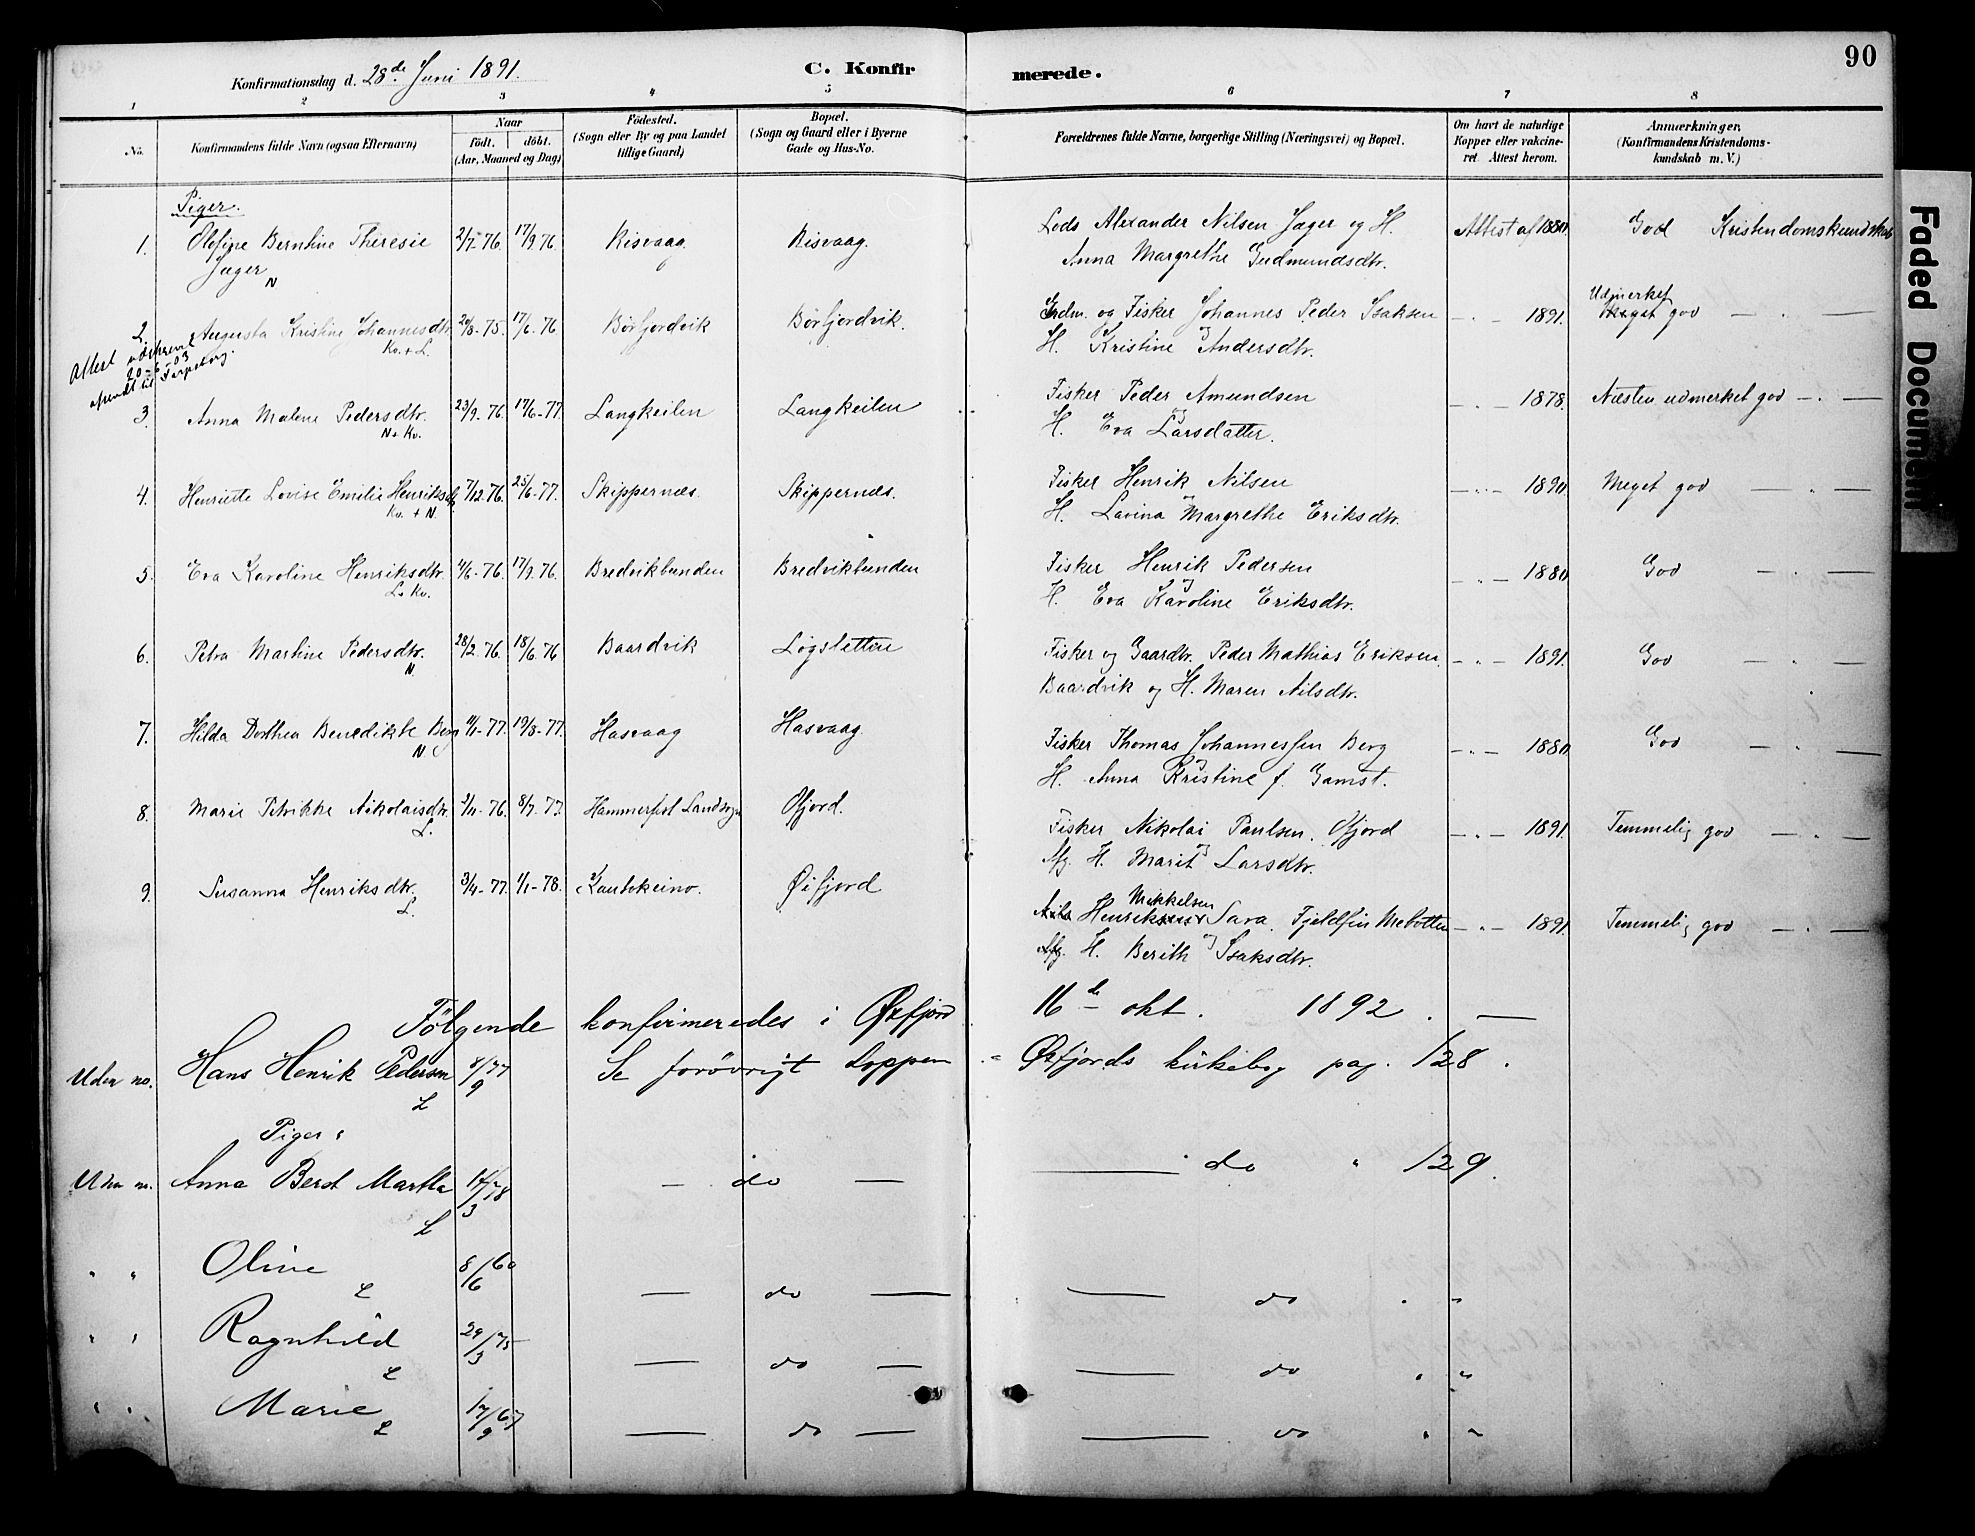 90
Konfirmationsdag d. 28de Juni 1891.
C. Konfirmerede.
1 2 3 4 5 6 7 8
No.
Konfirmandens fulde Navn (ogsaa Efternavn)
Naar
födt. döbt.
(Aar, Maaned og Dag)
Födested.
(Sogn eller By og paa Landet
tillige Gaard)
Bopæl.
(Sogn og Gaard eller i Byerne
Gade og Hus-No.
Forældrenes fulde Navne, borgerlige Stilling (Næringsvei) og Bopæl.
Om havt de naturlige
Kopper eller vakcine-
ret Attest herom.
Anmærkninger.
(Konfirmandens Kristendoms-
kundskab m. V.)
Piger.
1. Olefine Berntine Theresie 2/7. 76. 17/9 76. Risvaag. Risvaag. Lods Alexander Nilsen Jæger og H. Attest af 1880. God Kristendomskundskab
Jæger N Anna Margrethe Gudmundsdtr.
2. Augusta Kristine Johannesdtr. 20/8-75. 17/6. 76 Börfjordvik Börfjordvik. Enkm. og Fisker Johannes Peder Isaksen — " — 1891. Udmerket god — " —
Kv. + L. H. Kristine Andersdtr.
Attest udskrevet
20-6-03
3. Anna Malene Pedersdtr. 23/9. 76. 17/6-77. Langkeilen Langkeilen Fisker Peder Amundsen — " — 1878. Næsten udmerket god — " —
N + Kv. H. og Eva Larsdatter.
4. Henriette Lovise Emilie Henriksdtr 7/12.76. 25/6-77. Skippernæs. Skippernæs. Fisker Henrik Nilsen — " — 1890. Meget god — " —
Kv. + N. H. og Lavina Margrethe Eriksdtr.
5. Eva Karoline Henriksdtr. 4/6-76. 17/9. 76. Bredvikbunden Bredvikbunden Fisker Henrik Pedersen — " — 1880 God — " —
L. Kv. H. og Eva Karoline Eriksdtr.
6. Petra Martine Pedersdtr. 28/2.76. 18/6.76 Baardvik Logsletten Fisker og Gaardbr. Peder Mathias Eriksen — " — 1891. God — " —
N. Baardvik og H. Maren Nilsdtr.
7. Hilda Dorthea Benedikte Berg 4/1-77. 19/8-77. Hasvaag Hasvaag. Fisker Thomas Johannessen Berg — " — 1880. God — " —
N. H. og Anna Kristine f. Gamst.
8. Marie Petrikke Nikolaisdtr. 2/11-76. 8/7. 77. Hammerfest Landsogn Ofjord. Fisker Nikolai Paulsen. Ofjord — " — 1891. Temmelig god — " —
L. og H. Marit Larsdtr.
9. Susanna Henriksdtr. 3/4-77. 1/1-78. Kautokeino. Øifjord Henrik Mikkelsen Sara. Fjeldfin — " — 1891. Temmelig god — " —
L. H. og Berith Isaksdtr.
Følgende konfirmeredes i Øxfjord 16de okt. 1892. —
Uden no. Hans Henrik Pedersen 8/9 77 Se forøvrigt Loppen - Øxfjords kirkebog pag. 128.
L
Piger:
Uden no. Anna Berit Martha 14/3 78 — do — — do " 129.
L
" " Oline 8/6 60 — do — — do " "
L
" " Ragnhild 29/3 75 — do — — do " "
L
" " Marie 17/9 67 — do — — do " "
L
Faded Document